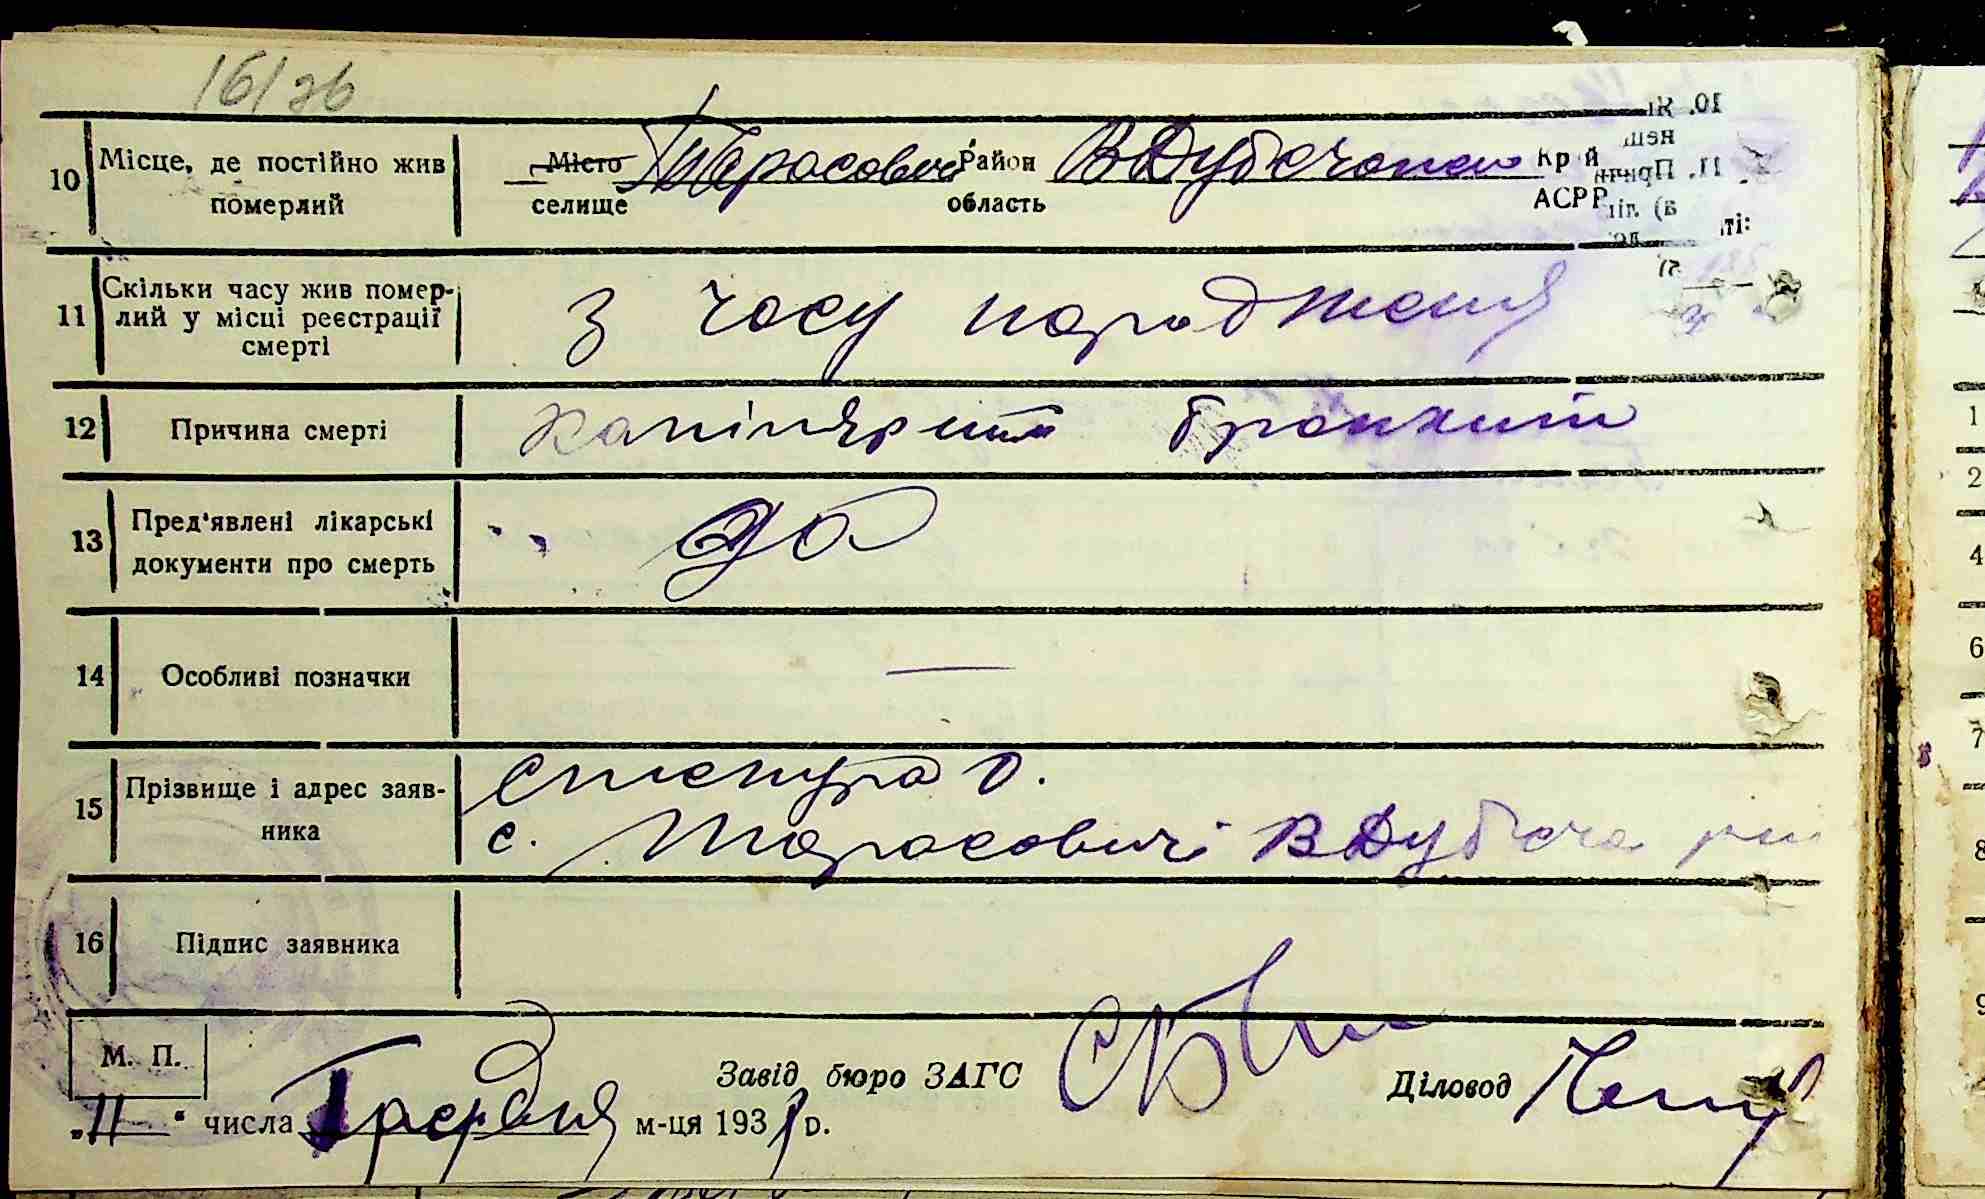 16/зв
10 Місце, де постійно жив померлий
Місто селище Тарасовичі Район область ВДубечанск Край АСРР
11 Скільки часу жив помер-
лий у місці реєстрації
смерті
з часу народженя
12 Причина смерті
Капілярний бронхит
13 Пред'явлені лікарські
документи про смерть
да
14 Особливі позначки —
15 Прізвище і адрес заяв-
ника
О.
с. Тарасовичі ВДубеча
16 Підпис заявника
М. П.
Завід бюро ЗАГС
Діловод
„11“ числа Грудня м-ця 193 р.
1
2
4
6
7
8
9